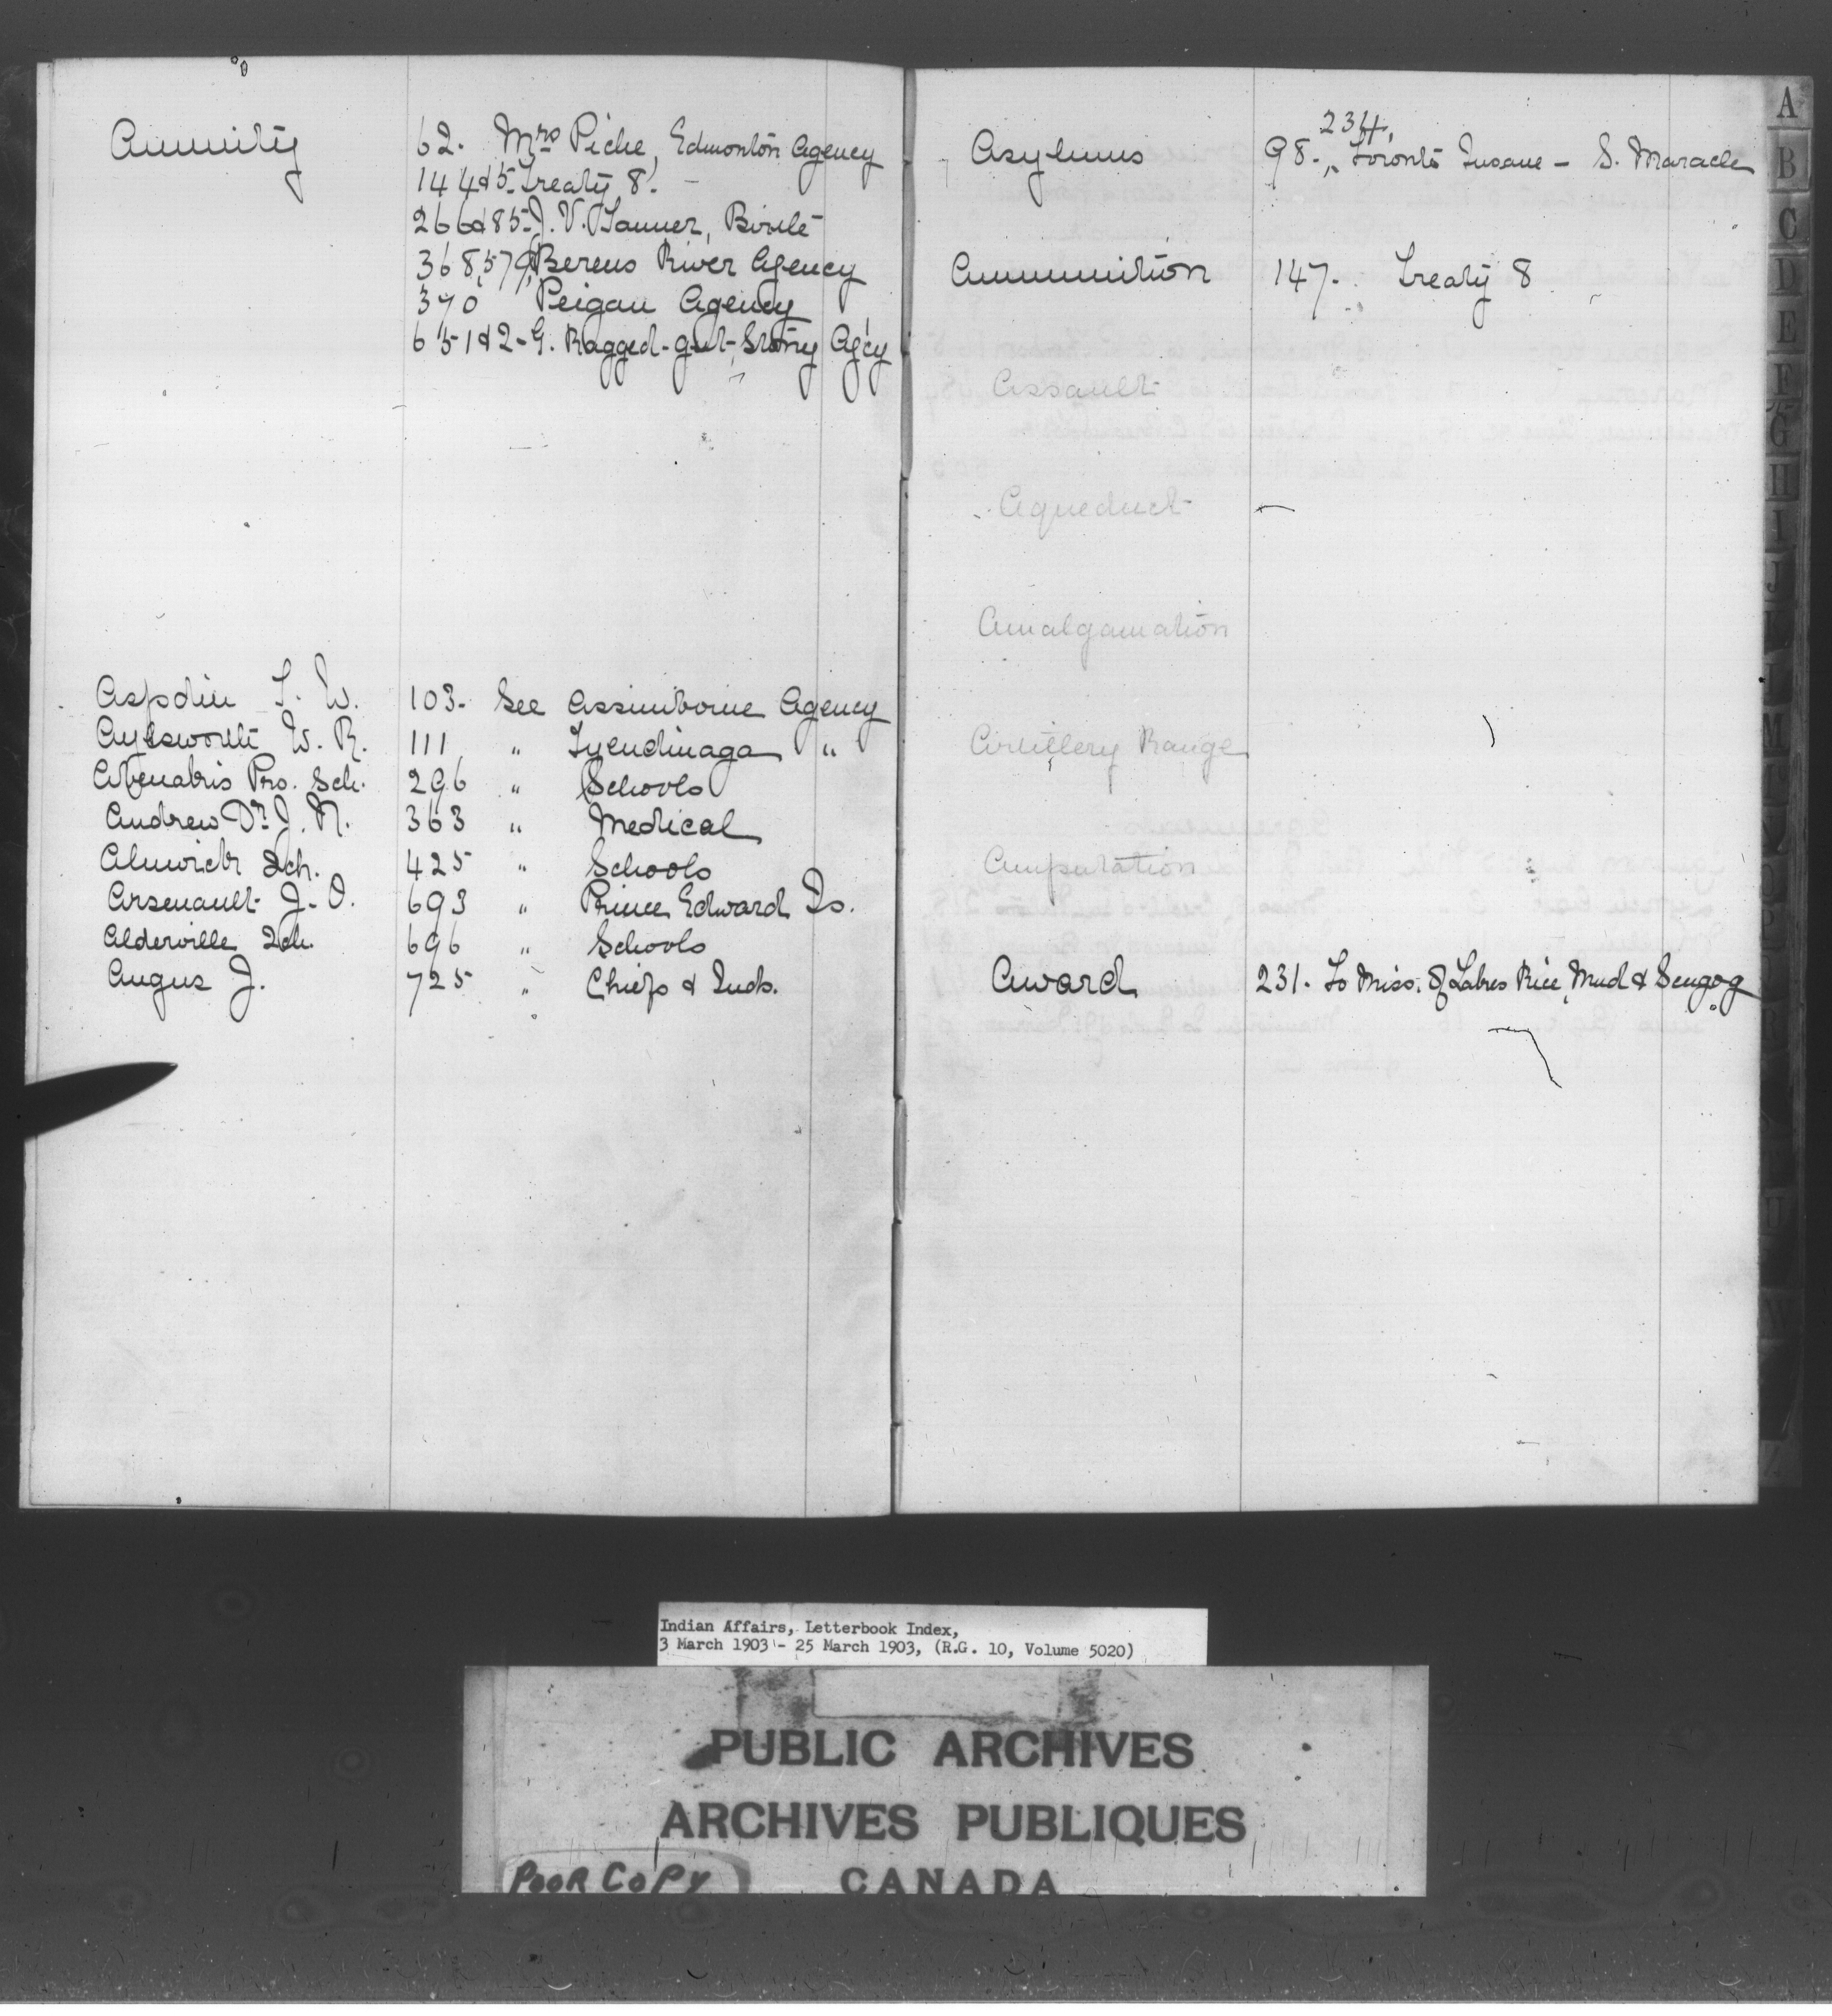 Annuity 62. Mrs Piche, Edmonton Agency
144&5- Treaty 8. -
266&85- J. V. Tanner, Birtle
368,579, Berens River Agency
370 Peigan Agency
651&2- G. Ragged-gut, Stony Agcy
Aspdin T. W. 103- See Assiniboine Agency
Aylsworth W. R. 111 " Tyendinaga "
Abenakis Pro. Sch. 296 " Schools
Andrew Dr J. N. 363 " Medical
Alnwick Sch. 425 " Schools
Arsenault J. O. 693 " Prince Edward Is.
Alderville Sch. 696 " Schools
Angus J. 725 " Chiefs & Inds.
234,
Asylums 98- Toronto Insane - S. Maracle
Ammunition 147. Treaty 8
Assault
Aqueduct -
Amalgamation
Artillery Range
Amputation
Award 231. To Miss. of Lakes Rice, Mud & Scugog
A
B
C
D
E
F
G
H
I
J
L
M
U
W
Z
Indian Affairs, Letterbook Index,
3 March 1903 - 25 March 1903, (R.G. 10, Volume 5020)
PUBLIC ARCHIVES
ARCHIVES PUBLIQUES
POOR COPY CANADA